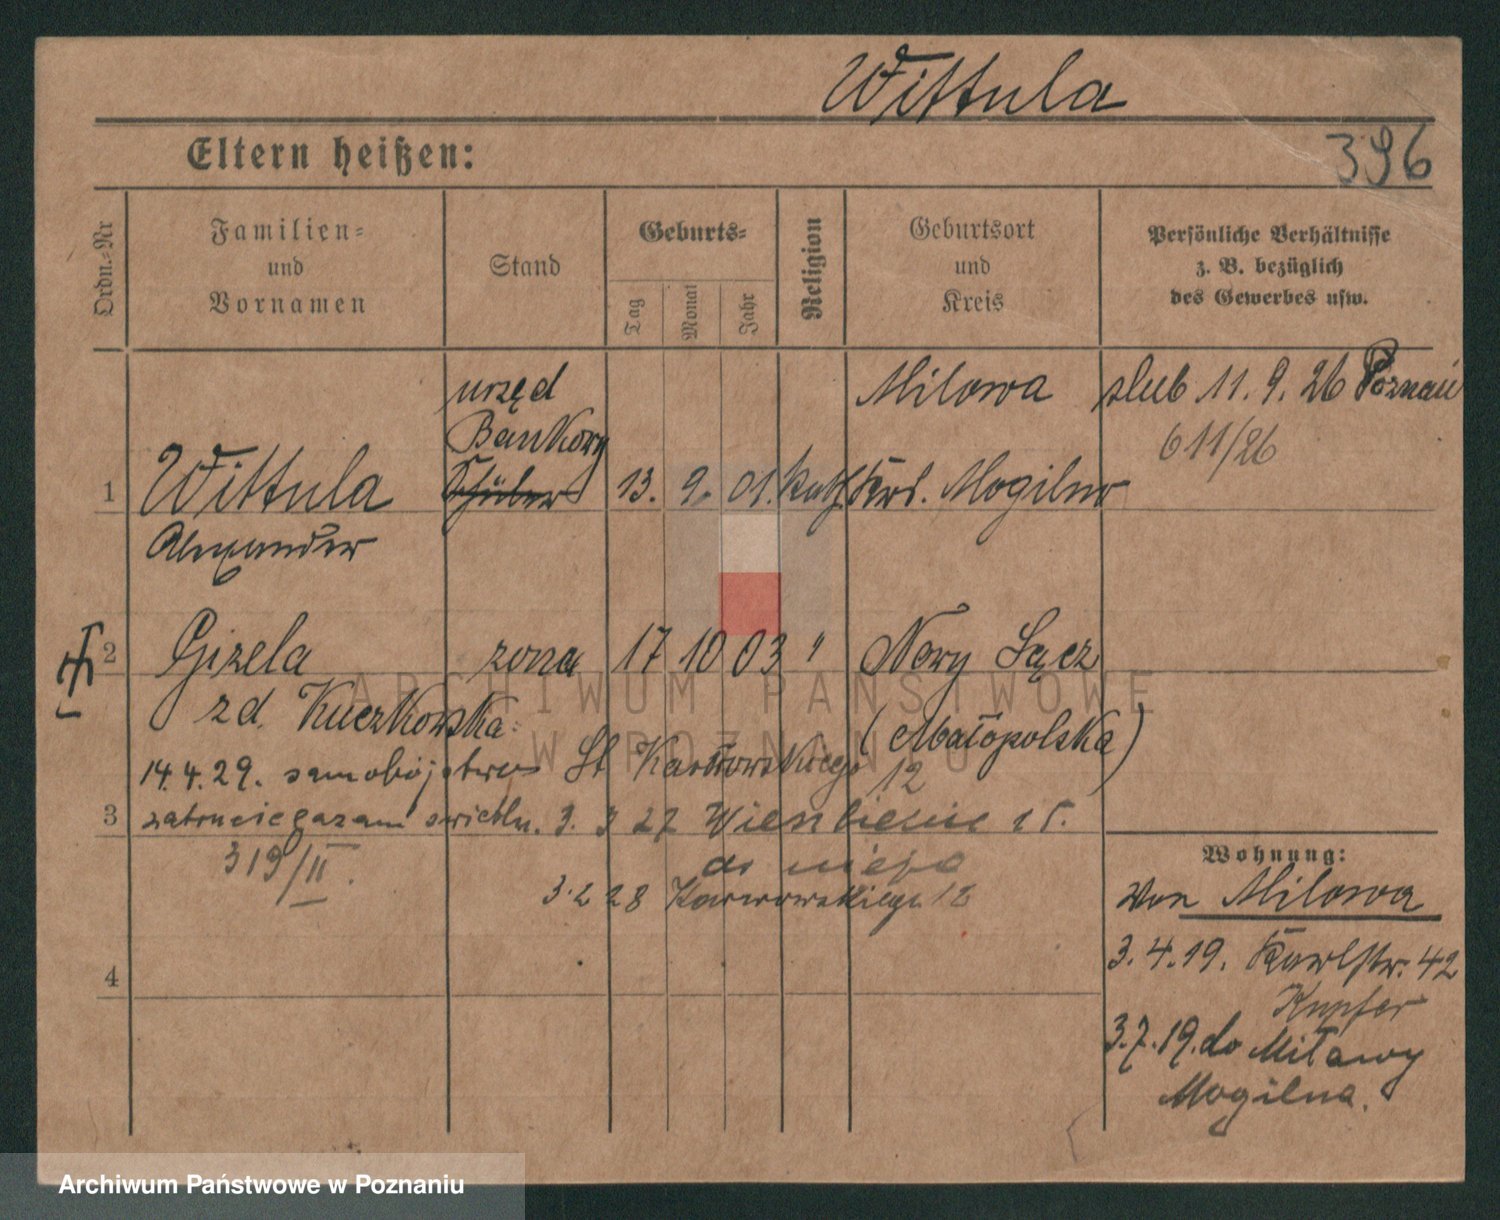 Wittula
396
Eltern heißen:
Ordn.-Nr
Familien-
und
Vornamen
Stand
Geburts-
Tag
Monat
Jahr
Religion
Geburtsort
und
Kreis
Persönliche Verhältnisse
z. B. bezüglich
des Gewerbes usw.
urzęd
Bankowy
1 Wittula Schüler 13. 9. 01. kath. Krs. Mogilno
Alexander
Milowa
slub 11. 9. 26 Poznań
611/26
2 Gizela zona 17 10 03 " Nowy Sącz
zd. Kuczkowska
(Małopolska)
14.4.29. samobójstwo
St Karwowskiego 12
3 zatrucie gazem świetln. 3. 3 27 15.
319/II.
do niego
3.2 28 Karwowskiego 12
4
Wohnung:
von Milowa
3.4.19. Karlstr. 42
Kupfer
3.7.19. do Miławy
Mogilna.
ARCHIWUM PAŃSTWOWE
W POZNANIU
Archiwum Państwowe w Poznaniu